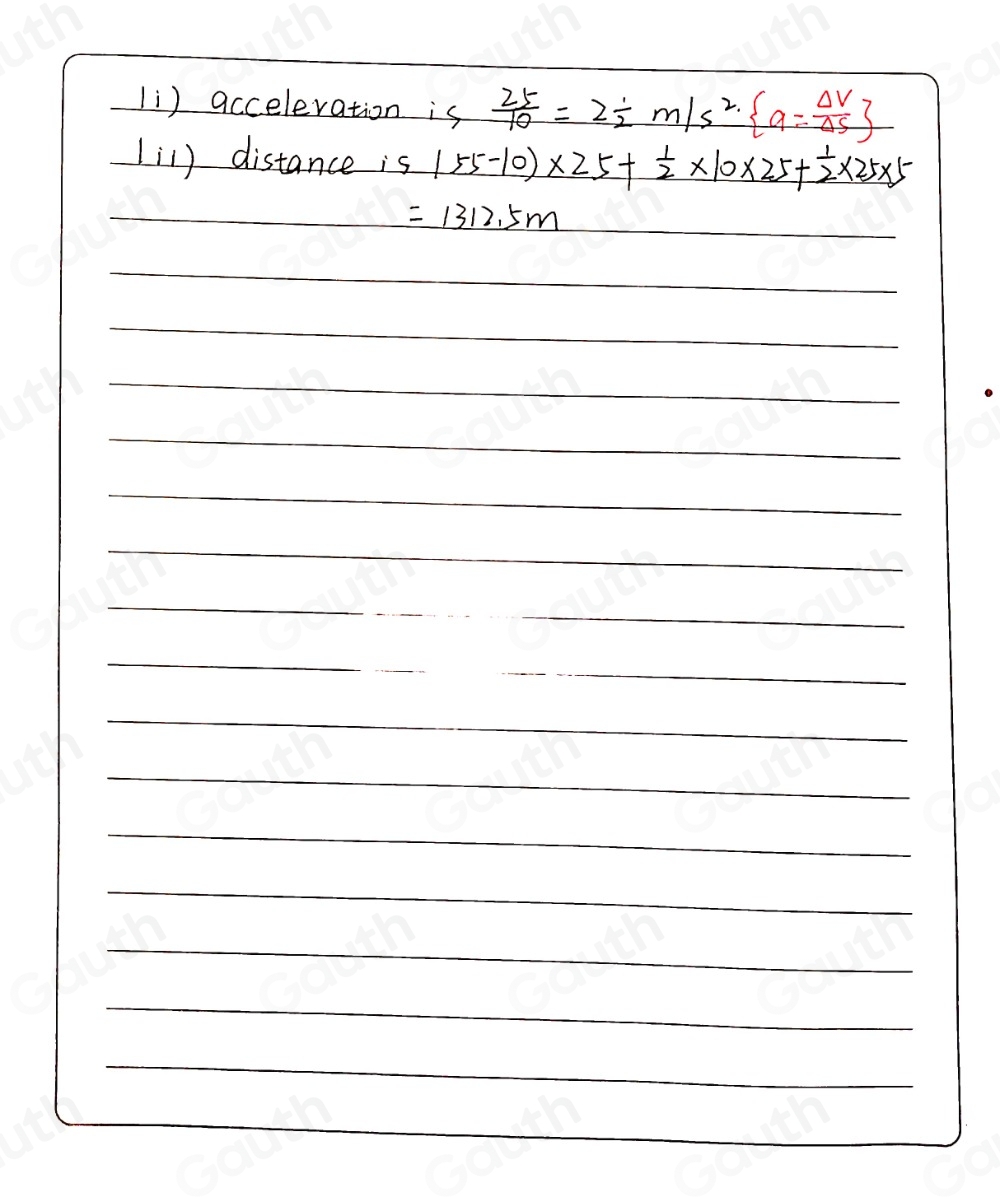 1i) acceleration is 25/10 = 2 1/2 m/s². {a = ΔV/ΔS}
1ii) distance is (55-10)×25+ 1/2 ×10×25+ 1/2 ×25×5
= 1312.5m